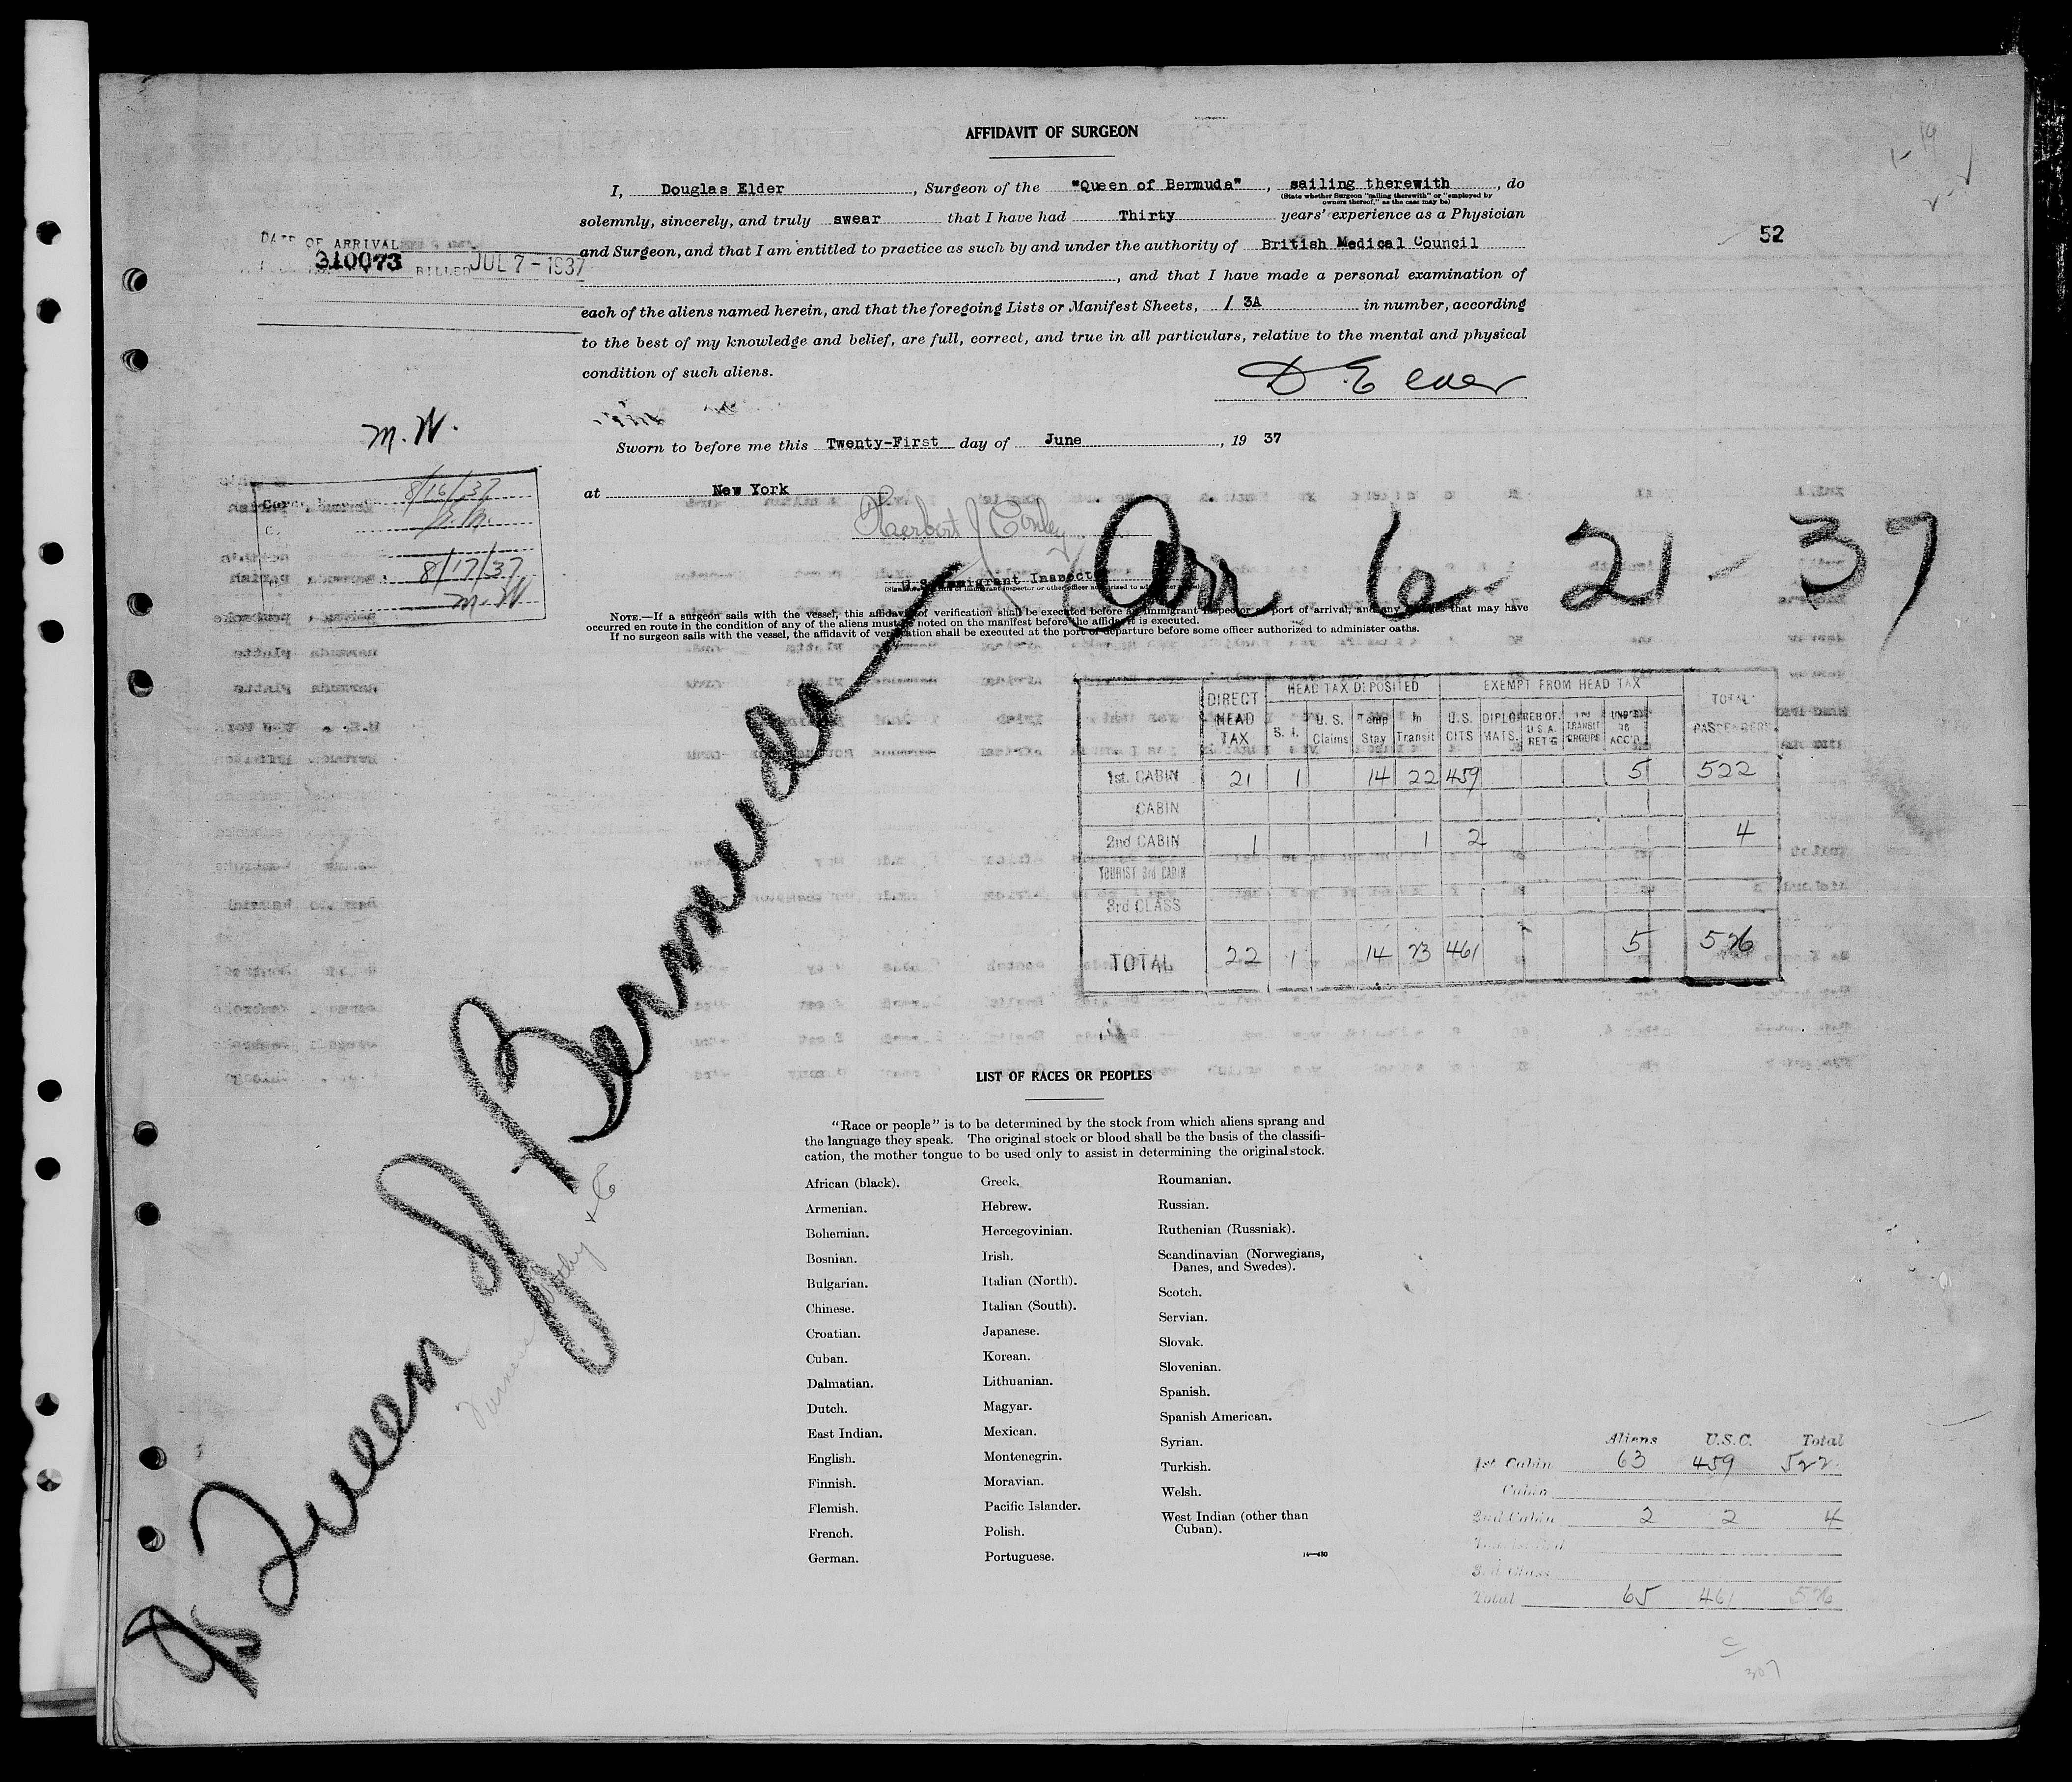 AFFIDAVIT OF SURGEON
I, Douglas Elder, Surgeon of the "Queen of Bermuda", sailing therewith, do
(State whether Surgeon "sailing therewith" or "employed by
owners thereof," as the case may be)
solemnly, sincerely, and truly swear that I have had Thirty years' experience as a Physician
and Surgeon, and that I am entitled to practice as such by and under the authority of British Medical Council
, and that I have made a personal examination of
each of the aliens named herein, and that the foregoing Lists or Manifest Sheets, / 3A in number, according
to the best of my knowledge and belief, are full, correct, and true in all particulars, relative to the mental and physical
condition of such aliens.
D Elder
Sworn to before me this Twenty-First day of June, 19 37
at New York
Herbert J Conley
U.S. Immigrant Inspector
NOTE.—If a surgeon sails with the vessel, this affidavit of verification shall be executed before an immigrant inspector at port of arrival, and any changes that may have
occurred en route in the condition of any of the aliens must be noted on the manifest before the affidavit is executed.
If no surgeon sails with the vessel, the affidavit of verification shall be executed at the port of departure before some officer authorized to administer oaths.
52
DATE OF ARRIVAL
310073 BILLED JUL 7 - 1937
M. W.
8/16/37
8/17/37
M. W
Arr 6 - 21 - 37
SS Queen of Bermuda
DIRECT HEAD TAX
HEAD TAX DEPOSITED
EXEMPT FROM HEAD TAX
TOTAL PASSENGERS
S. I. U. S. Claims Temp Stay In Transit U.S. CITS DIPLOMATS. REB OF. U.S.A. RET'G TRANSIT GROUPS UNDER 16 ACC'D
1st. CABIN 21 1 14 22 459 5 522
CABIN
2nd CABIN 1 1 2 4
TOURIST 3rd CABIN
3rd CLASS
TOTAL 22 1 14 23 461 5 526
LIST OF RACES OR PEOPLES
"Race or people" is to be determined by the stock from which aliens sprang and
the language they speak. The original stock or blood shall be the basis of the classifi-
cation, the mother tongue to be used only to assist in determining the original stock.
African (black).
Armenian.
Bohemian.
Bosnian.
Bulgarian.
Chinese.
Croatian.
Cuban.
Dalmatian.
Dutch.
East Indian.
English.
Finnish.
Flemish.
French.
German.
Greek.
Hebrew.
Hercegovinian.
Irish.
Italian (North).
Italian (South).
Japanese.
Korean.
Lithuanian.
Magyar.
Mexican.
Montenegrin.
Moravian.
Pacific Islander.
Polish.
Portuguese.
Roumanian.
Russian.
Ruthenian (Russniak).
Scandinavian (Norwegians,
Danes, and Swedes).
Scotch.
Servian.
Slovak.
Slovenian.
Spanish.
Spanish American.
Syrian.
Turkish.
Welsh.
West Indian (other than
Cuban).
14—430
Aliens U.S.C. Total
1st Cabin 63 459 522
Cabin
2nd Cabin 2 2 4
3rd Class
Total 65 461 526
C
307